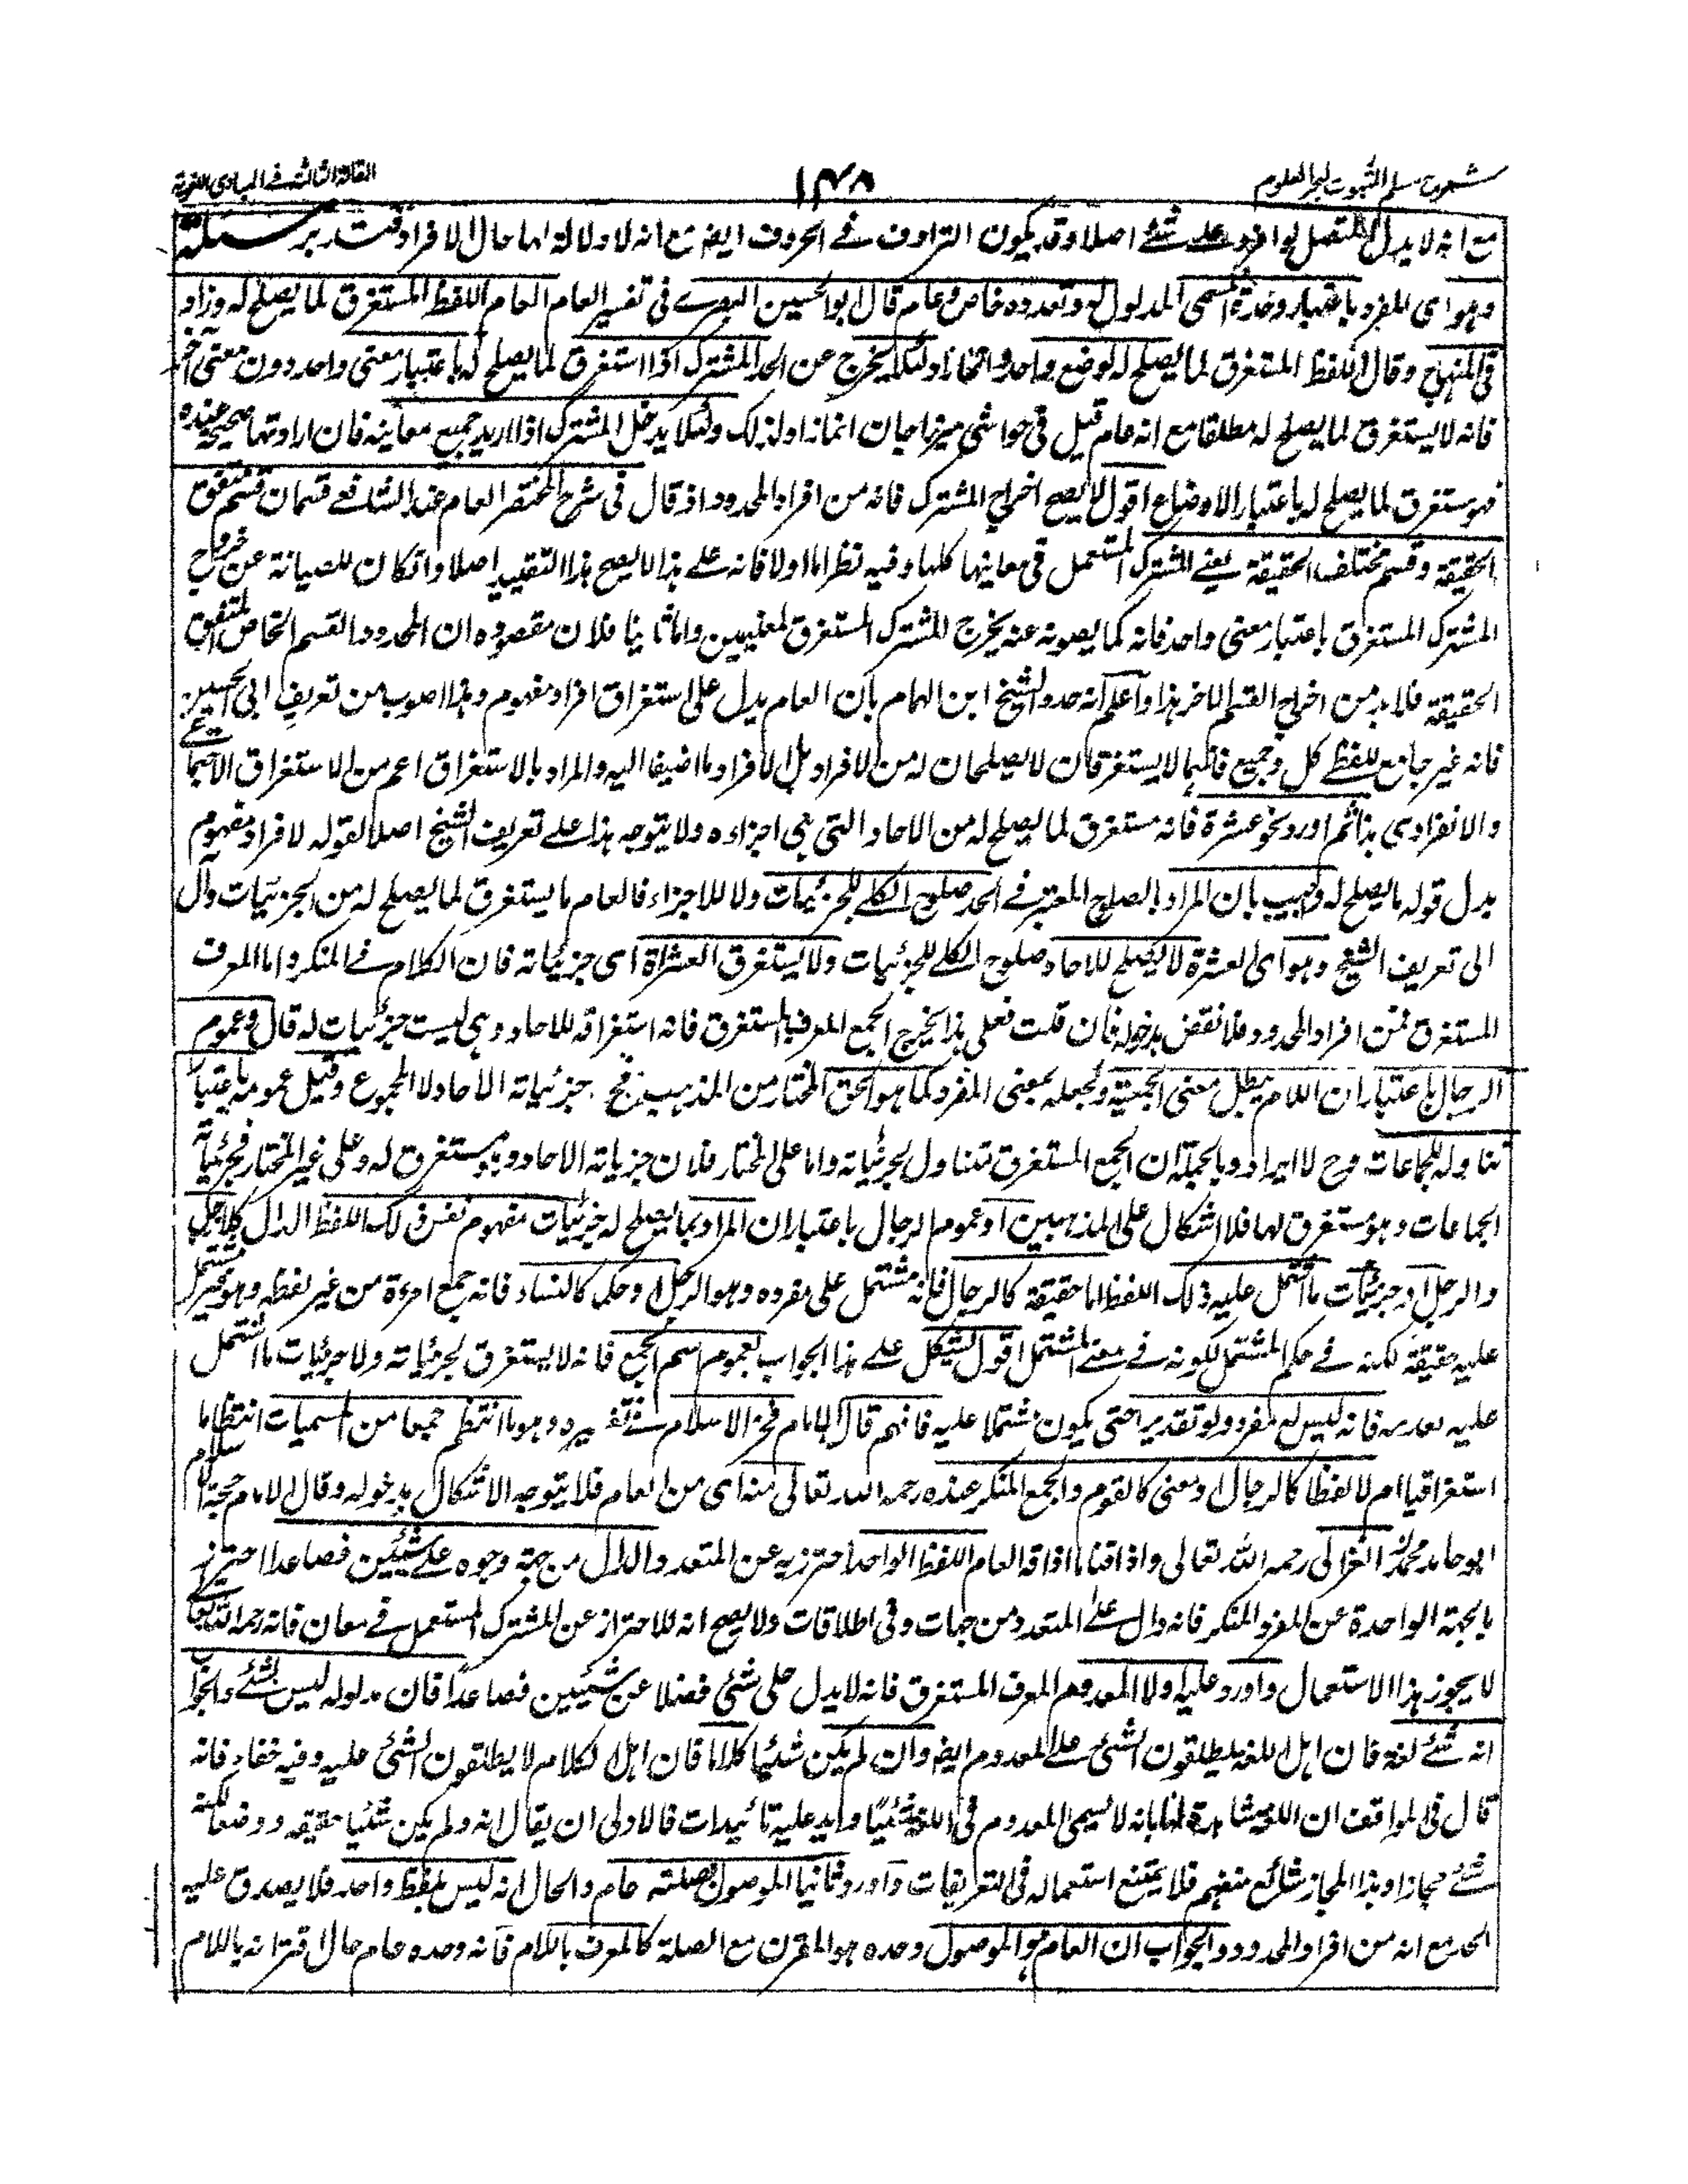 شرح مسلم الثبوت لبحر العلوم
١٤٨
المقالة الثالثة في المبادي اللغوية
مع انه لا يدل المتصل لو افرد على شئ اصلا وقد يكون الترادف في الحروف ايضا مع انه لا دلالة لها حال الافراد فتدبر مسئلة
وهو اى المفرد باعتبار وحدة المسمى المدلول له وتعدده خاص وعام قال ابو الحسين البصرے فى تفسير العام العام اللفظ المستغرق لما يصلح له وزاد
فى المنهاج وقال اللفظ المستغرق لما يصلح له لوضع واحد وانما زاد لئلا يخرج عن الحد المشترك اذا استغرق لما يصلح له باعتبار معنى واحد دون معنى آخر
فانه لا يستغرق لما يصلح له مطلقا مع انه عام قيل فى حواشى ميرزا جان انما زاد لذلك ولئلا يدخل المشترك اذا اريد جميع معانيه فان ارادتها صحيحة عنده
فهو مستغرق لما يصلح له باعتبار الاوضاع اقول لا يصح اخراج المشترك فانه من افراد المحدود اذ قال فى شرح المختصر العام عند الشافعے قسمان قسم متفق
الحقيقة وقسم مختلف الحقيقة يعنے المشترك المستعمل فى معانيها كلها وفيه نظر اما اولا فانه علے هذا لا يصح هذا التقييد اصلا وان كان للصيانة عن خروج
المشترك المستغرق باعتبار معنى واحد فانه كما يصونه عنه يخرج المشترك المستغرق لمعنيين واما ثانيا فلان مقصوده ان المحدود القسم الخاص المتفق
الحقيقة فلا بد من اخراج القسم الآخر هذا واعلم انه حد الشيخ ابن الهمام بان العام يدل على استغراق افراد مفهوم وهذا اصوب من تعريف ابى الحسين
فانه غير جامع للفظے كل وجميع فانهما لا يستغرقان لا يصلحان له من الافراد بل لافراد ما اضيفا اليه والمراد بالاستغراق اعم من الاستغراق الاجتماعے
والانفرادى هذا ثم اورد نحو عشرة فانه مستغرق لما يصلح له من الآحاد التى هى اجزاءه ولا يتوجه هذا علے تعريف الشيخ اصلا لقوله لافراد مفهوم
بدل قوله ما يصلح له واجيب بان المراد بالصلاح المعتبر فے الحد صلوح الكلے للجزئيات ولا للاجزاء فالعام ما يستغرق لما يصلح له من الجزئيات وآل
الى تعريف الشيخ وهو اى العشرة لا يصلح للآحاد صلوح الكلے للجزئيات ولا يستغرق العشرات اى جزئياته فان الكلام فے المنكر واما المعرف
المستغرق فمن افراد المحدود فلا نقض بدخوله فان قلت فعلى هذا يخرج الجمع المعرف المستغرق فانه استغراقه للآحاد وهى ليست جزئيات له قال وعموم
الرجال باعتبار ان اللام يبطل معنى الجمعية ويجعله بمعنى المفرد كما هو الحق المختار من المذهب فح جزئياته الآحاد لا المجموع وقيل عمومه باعتبار
تناوله للجماعات وح لا ايراد وبالجملة ان الجمع المستغرق تتناول لجزئياته واما على المختار فلان جزئياته الآحاد وهو مستغرق له وعلى غير المختار فجزئياته
الجماعات وهو مستغرق لها فلا اشكال على المذهبين او عموم الرجال باعتبار ان المراد بما يصلح له جزئيات مفهوم نفس ذلك اللفظ الدال كلا رجل
والرجل او جزئيات ما اشتمل عليه ذلك اللفظ اما حقيقة كالرجال فانه مشتمل على مفرده وهو الرجل او حكما كالنساء فانه جمع امرءة من غير لفظه وهو غير مشتمل
عليه حقيقة لكنه فے حكم المشتمل لكونه فے معنے المشتمل اقول يشكل علے هذا الجواب بعموم اسم الجمع فانه لا يستغرق لجزئياته ولا جزئيات ما اشتمل
عليه فانه ليس له مفرد ولو تقديرا حتى يكون مشتملا عليه فافهم قال الامام فخر الاسلام فے تفسيره وهو ما انتظم جمعا من المسميات انتظاما
استغراقيا ام لا لفظا كالرجال او معنى كالقوم والجمع المنكر عنده رحمه الله تعالى منه اى من العام فلا يتوجه الاشكال بدخوله وقال الامام حجة الاسلام
ابو حامد محمد الغزالى رحمه الله تعالى واذاقنا ما اذاقه العام اللفظ الواحد احترز به عن المتعدد والدال من جهة وجوه علے شيئين فصاعدا احترز
بالجهة الواحدة عن المفرد المنكر فانه دال علے المتعدد من جهات وفى اطلاقات ولا يصح انه للاحتراز عن المشترك المستعمل فے معان فانه رحمه الله تعالى
لا يجوز هذا الاستعمال واورد عليه اولا المعدوم المعرف المستغرق فانه لا يدل على شئ فضلا عن شيئين فصاعدا فان مدلوله ليس بشئے والجواب
انه شئے لغة فان اهل اللغة يطلقون الشئ علے المعدوم ايضا وان لم يكن شيئا كلاما فان اهل الكلام لا يطلقون الشئ عليه وفيه خفاء فانه
قال فى المواقف ان اللغة شاهدة لنا بانه لا يسمى المعدوم فى اللغة شيئا وايد عليه تائيدات فالاولى ان يقال انه ولو لم يكن شيئا حقيقة ووضعا لكنه
شئے مجازا وهذا المجاز شائع منفهم فلا يمتنع استعماله فى التعريفات واورد ثانيا الموصول بصلته عام والحال انه ليس بلفظ واحد فلا يصدق عليه
الحد مع انه من افراد المحدود والجواب ان العام هو الموصول وحده هو المقترن مع الصلة كالمعرف باللام فانه وحده عام حال اقترانه باللام